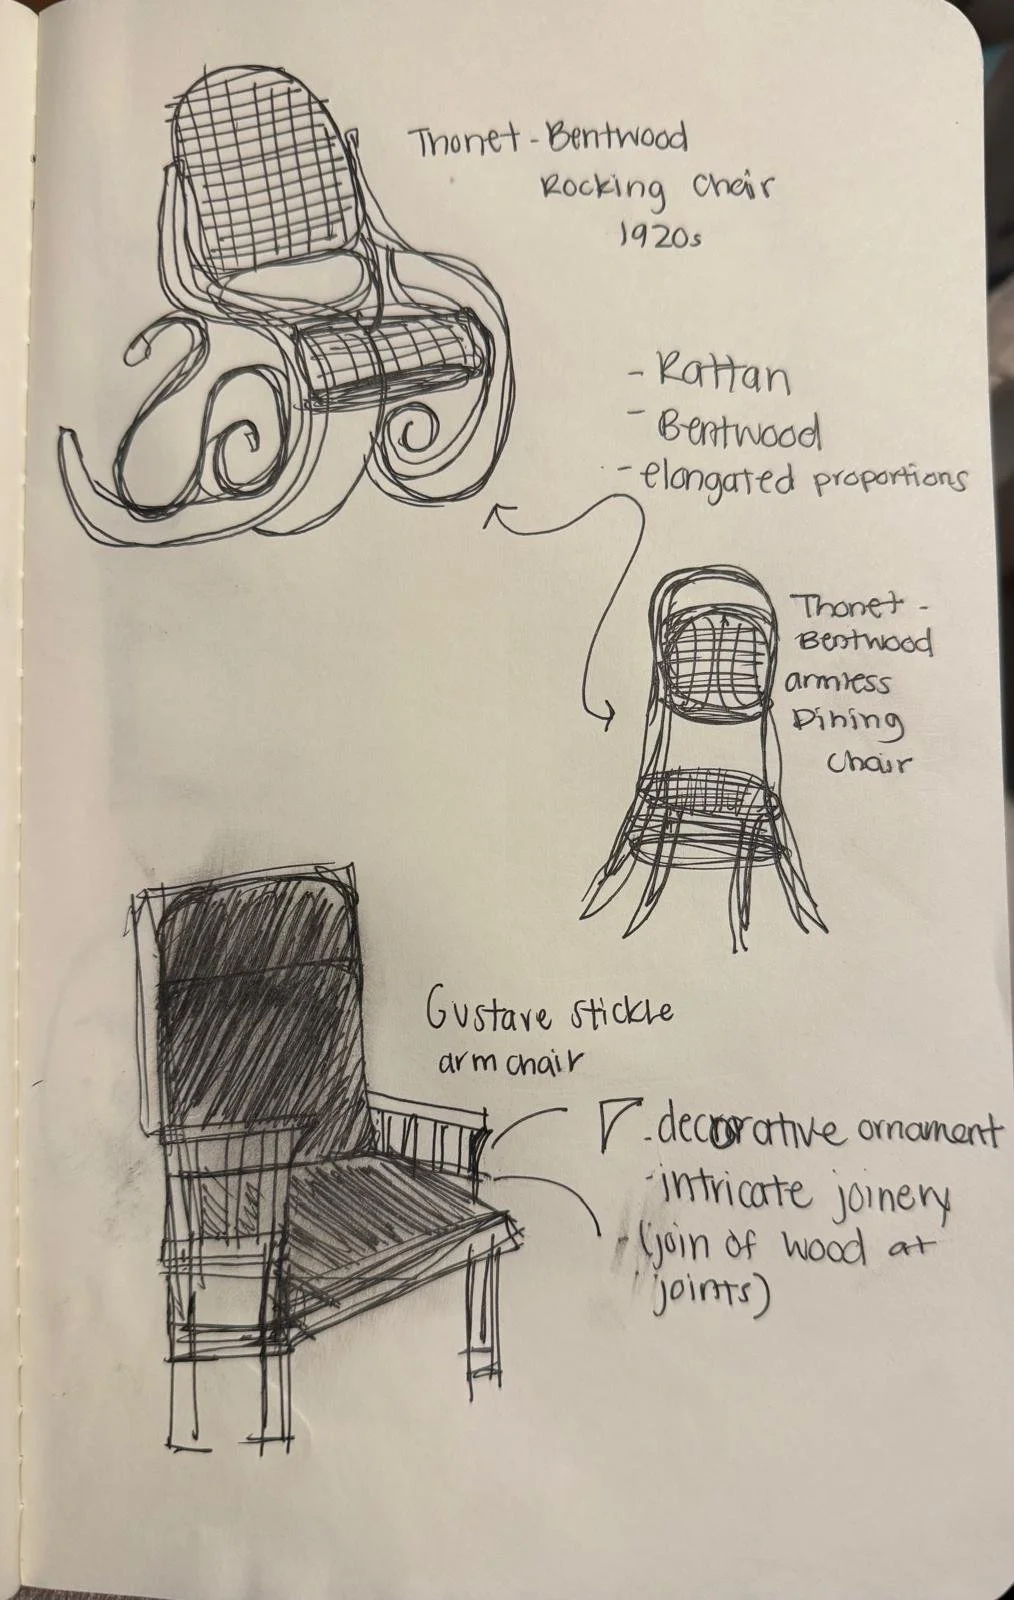 Thonet - Bentwood
Rocking Chair
1920s
- Rattan
- Bentwood
- elongated proportions
Thonet -
Bentwood
armless
Dining
Chair
Gustave stickle
arm chair
- decorative ornament
- intricate joinery
- (join of wood at
joints)